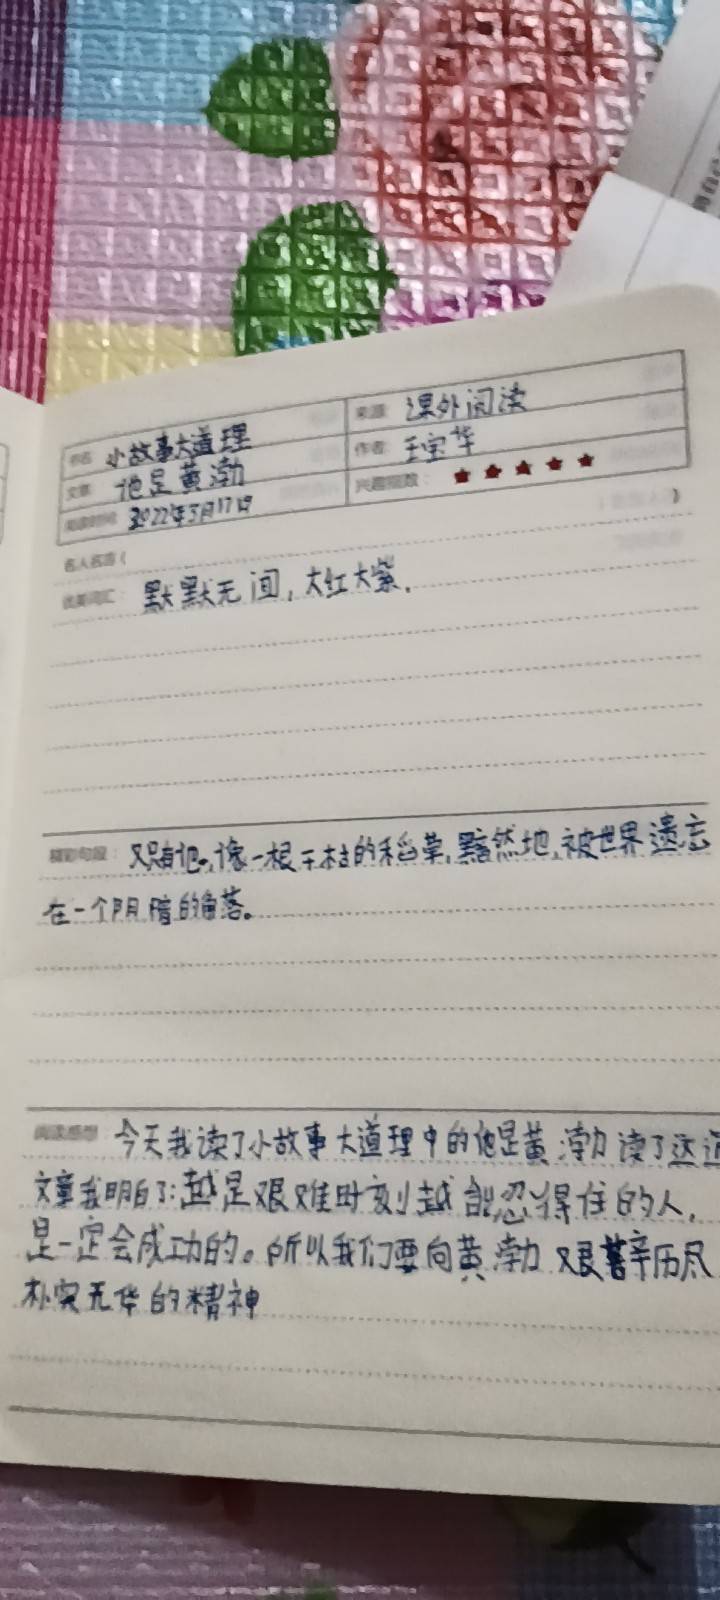 书名 小故事大道理 来源 课外阅读
文章 他是黄渤 作者 王宝华
阅读时间 2022年3月17日 兴趣指数：★★★★★
名人名言（ ）
优美词汇：默默无闻，大红大紫.
精彩句段：又只有他,像一根干枯的稻草,黯然地,被世界遗忘
在一个阴暗的角落。
阅读感想 今天我读了小故事大道理中的他是黄渤读了这
文章我明白了:越是艰难时刻越能忍得住的人,
是一定会成功的。所以我们要向黄渤艰苦辛历尽
朴实无华的精神